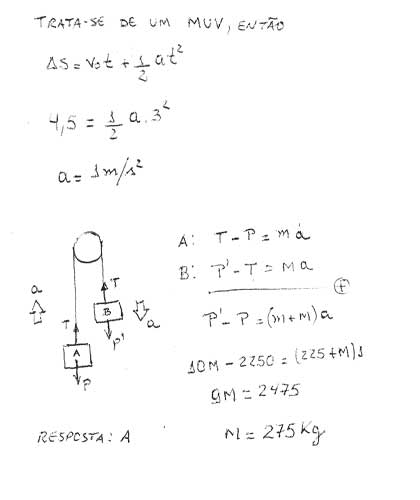 TRATA-SE DE UM MUV, ENTÃO
ΔS = V₀t + 1/2 at²
4,5 = 1/2 a . 3²
a = 1m/s²
A: T - P = ma
B: P' - T = Ma
+
P' - P = (m + M) a
10M - 2250 = (225 + M) 1
9M = 2475
M = 275 Kg
a
T
A
P
T
B
P'
a
RESPOSTA: A